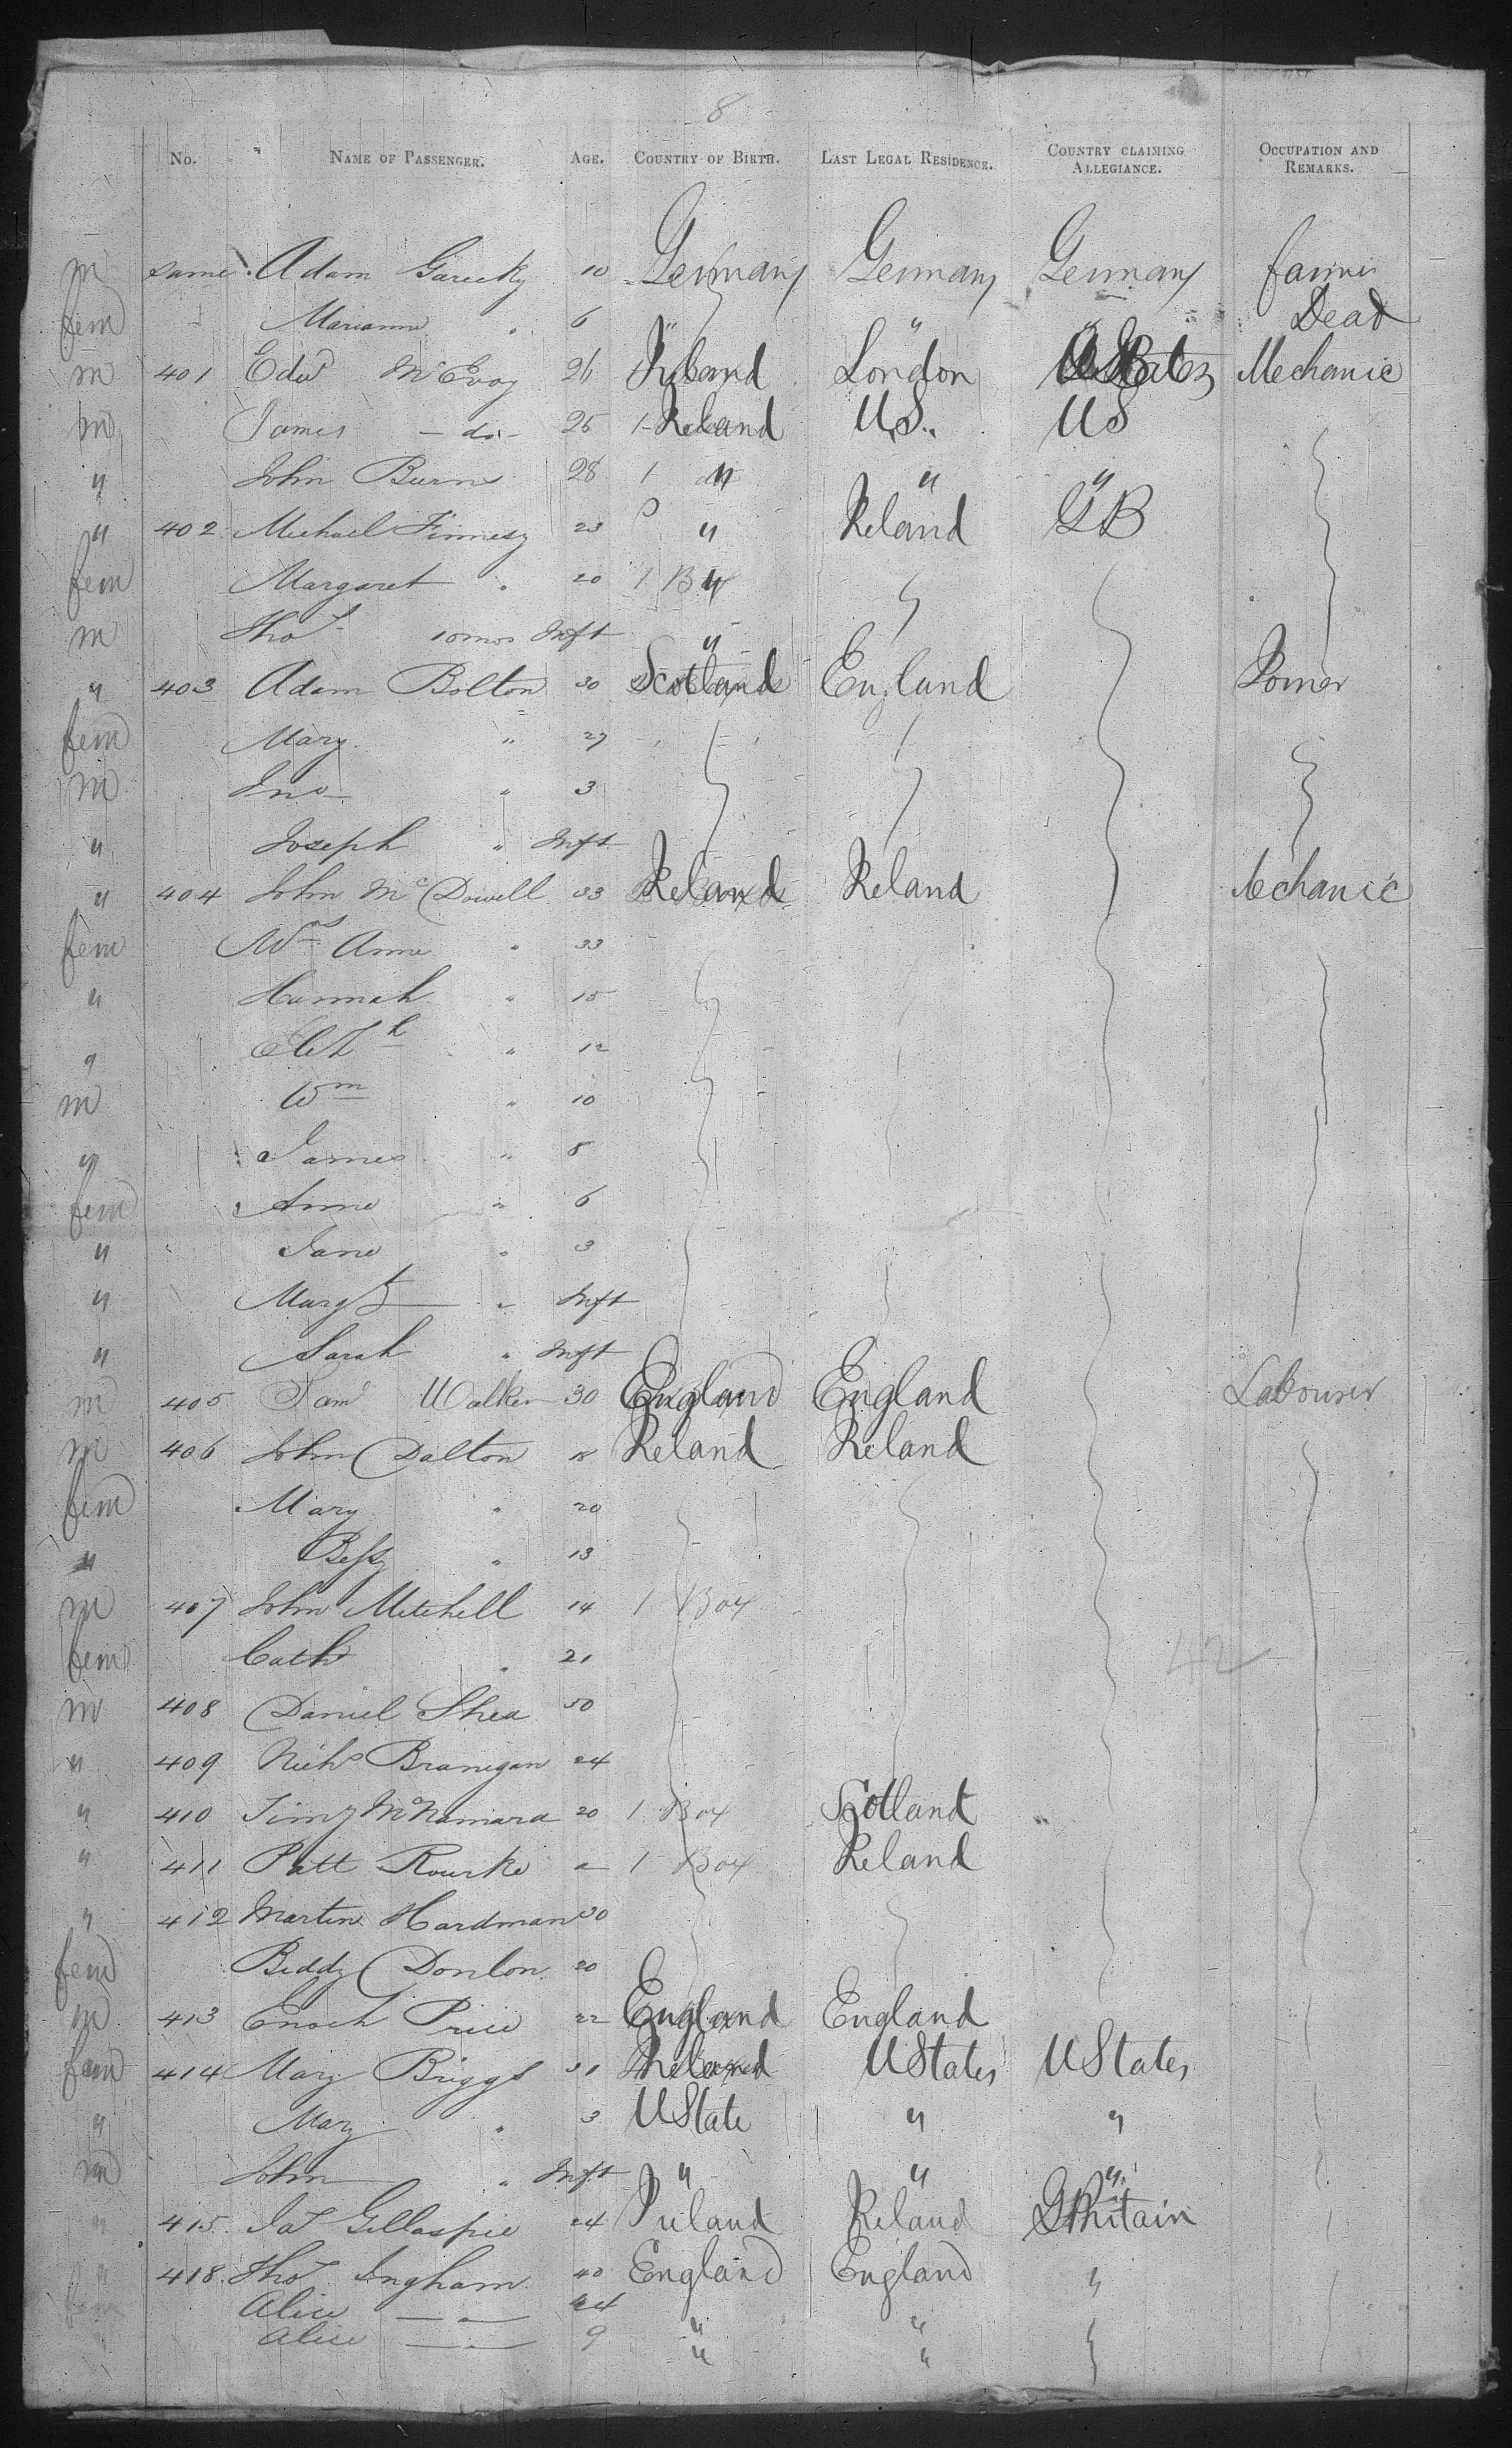 8
No. NAME OF PASSENGER. AGE. COUNTRY OF BIRTH. LAST LEGAL RESIDENCE. COUNTRY CLAIMING ALLEGIANCE. OCCUPATION AND REMARKS.
m same Adam Garecky 10 Germany Germany Germany farmer
fem Marianne " 6 " " " Dead
m 401 Edwd McEvoy 26 Ireland London UStates Mechanic
m James - do - 25 1 Ireland U.S. US
" John Burns 28 1 " " "
" 402 Michael Finnesy 23 " Ireland GB
fem Margaret " 20 1 Box "
m Thos 10 mos Inft "
" 403 Adam Bolton 30 Scotland England
fem Mary " 27
m Jno " 3
" Joseph " Inft
" 404 John McDowell 33 Ireland Ireland Mechanic
fem Mrs Anne " 33
" Hannah " 15
" Elizth " 12
m Wm " 10
" James " 8
fem Anne " 6
" Jane " 3
" Margt " Inft
" Sarah " Inft
m 405 Saml Walker 30 England England Labourer
m 406 John Dalton 18 Ireland Ireland
fem Mary " 20
" Bessy " 13
m 407 John Mitchell 14 1 Box
fem Cath " 21
42
m 408 Daniel Shea 50
" 409 Nichs Branigan 24
" 410 Timy McNamara 20 1 Box Scotland
" 411 Patt Rourke " 1 Box Ireland
" 412 Martin Hardman 30
fem Biddy Donlon 20
m 413 Enoch Price 22 England England
fem 414 Mary Briggs 31 Ireland UStates UStates
" Mary " 3 UState " "
m John " Inft " " "
" 415 Jas Gillaspie 24 Ireland Ireland GBritain
" 418 Thos Ingham 40 England England "
fem Alice " 44 " "
" Alice " 9 " "